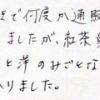 まで何度か通販
ましたが、紅茶専
と洋のみごとな
りました。